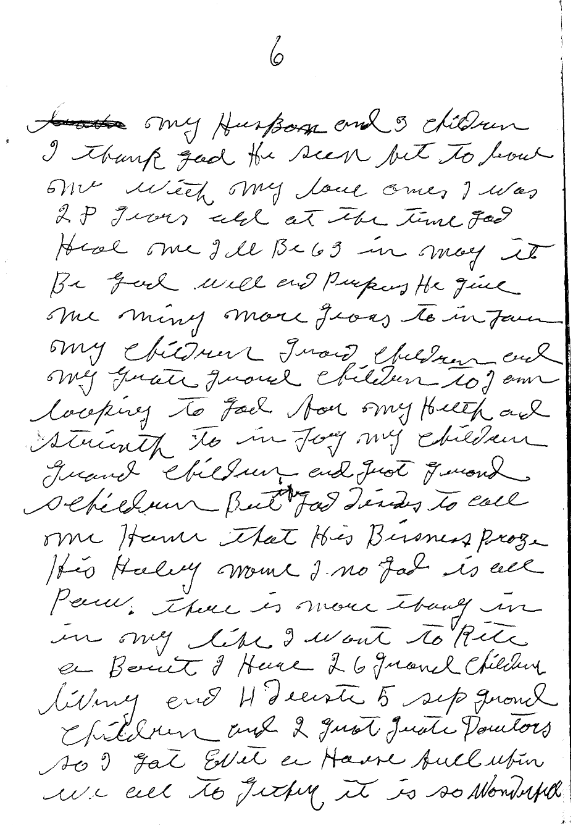 6
my Husban and 3 children
I thank god He seen fit to
me with my love omes I was
28 years old at the time god
Heal me I'll Be 63 in may it
Be god will and Purpus He give
me miny more years to in
my children grand children and
my grate grand children to I am
looking to god for my Helth ad
strinth to in Joy my children
grand children and grat grand
schildren But if god dicides to call
me Home that His Bisness
His Holey name I no god is all
Pow. there is more thang in
in my life I want to Rite
a Bout I Have 26 grand children
living and 4 5 step grand
children and 2 grat grate
so I got a House full when
we all to gether it is so Wonderfull